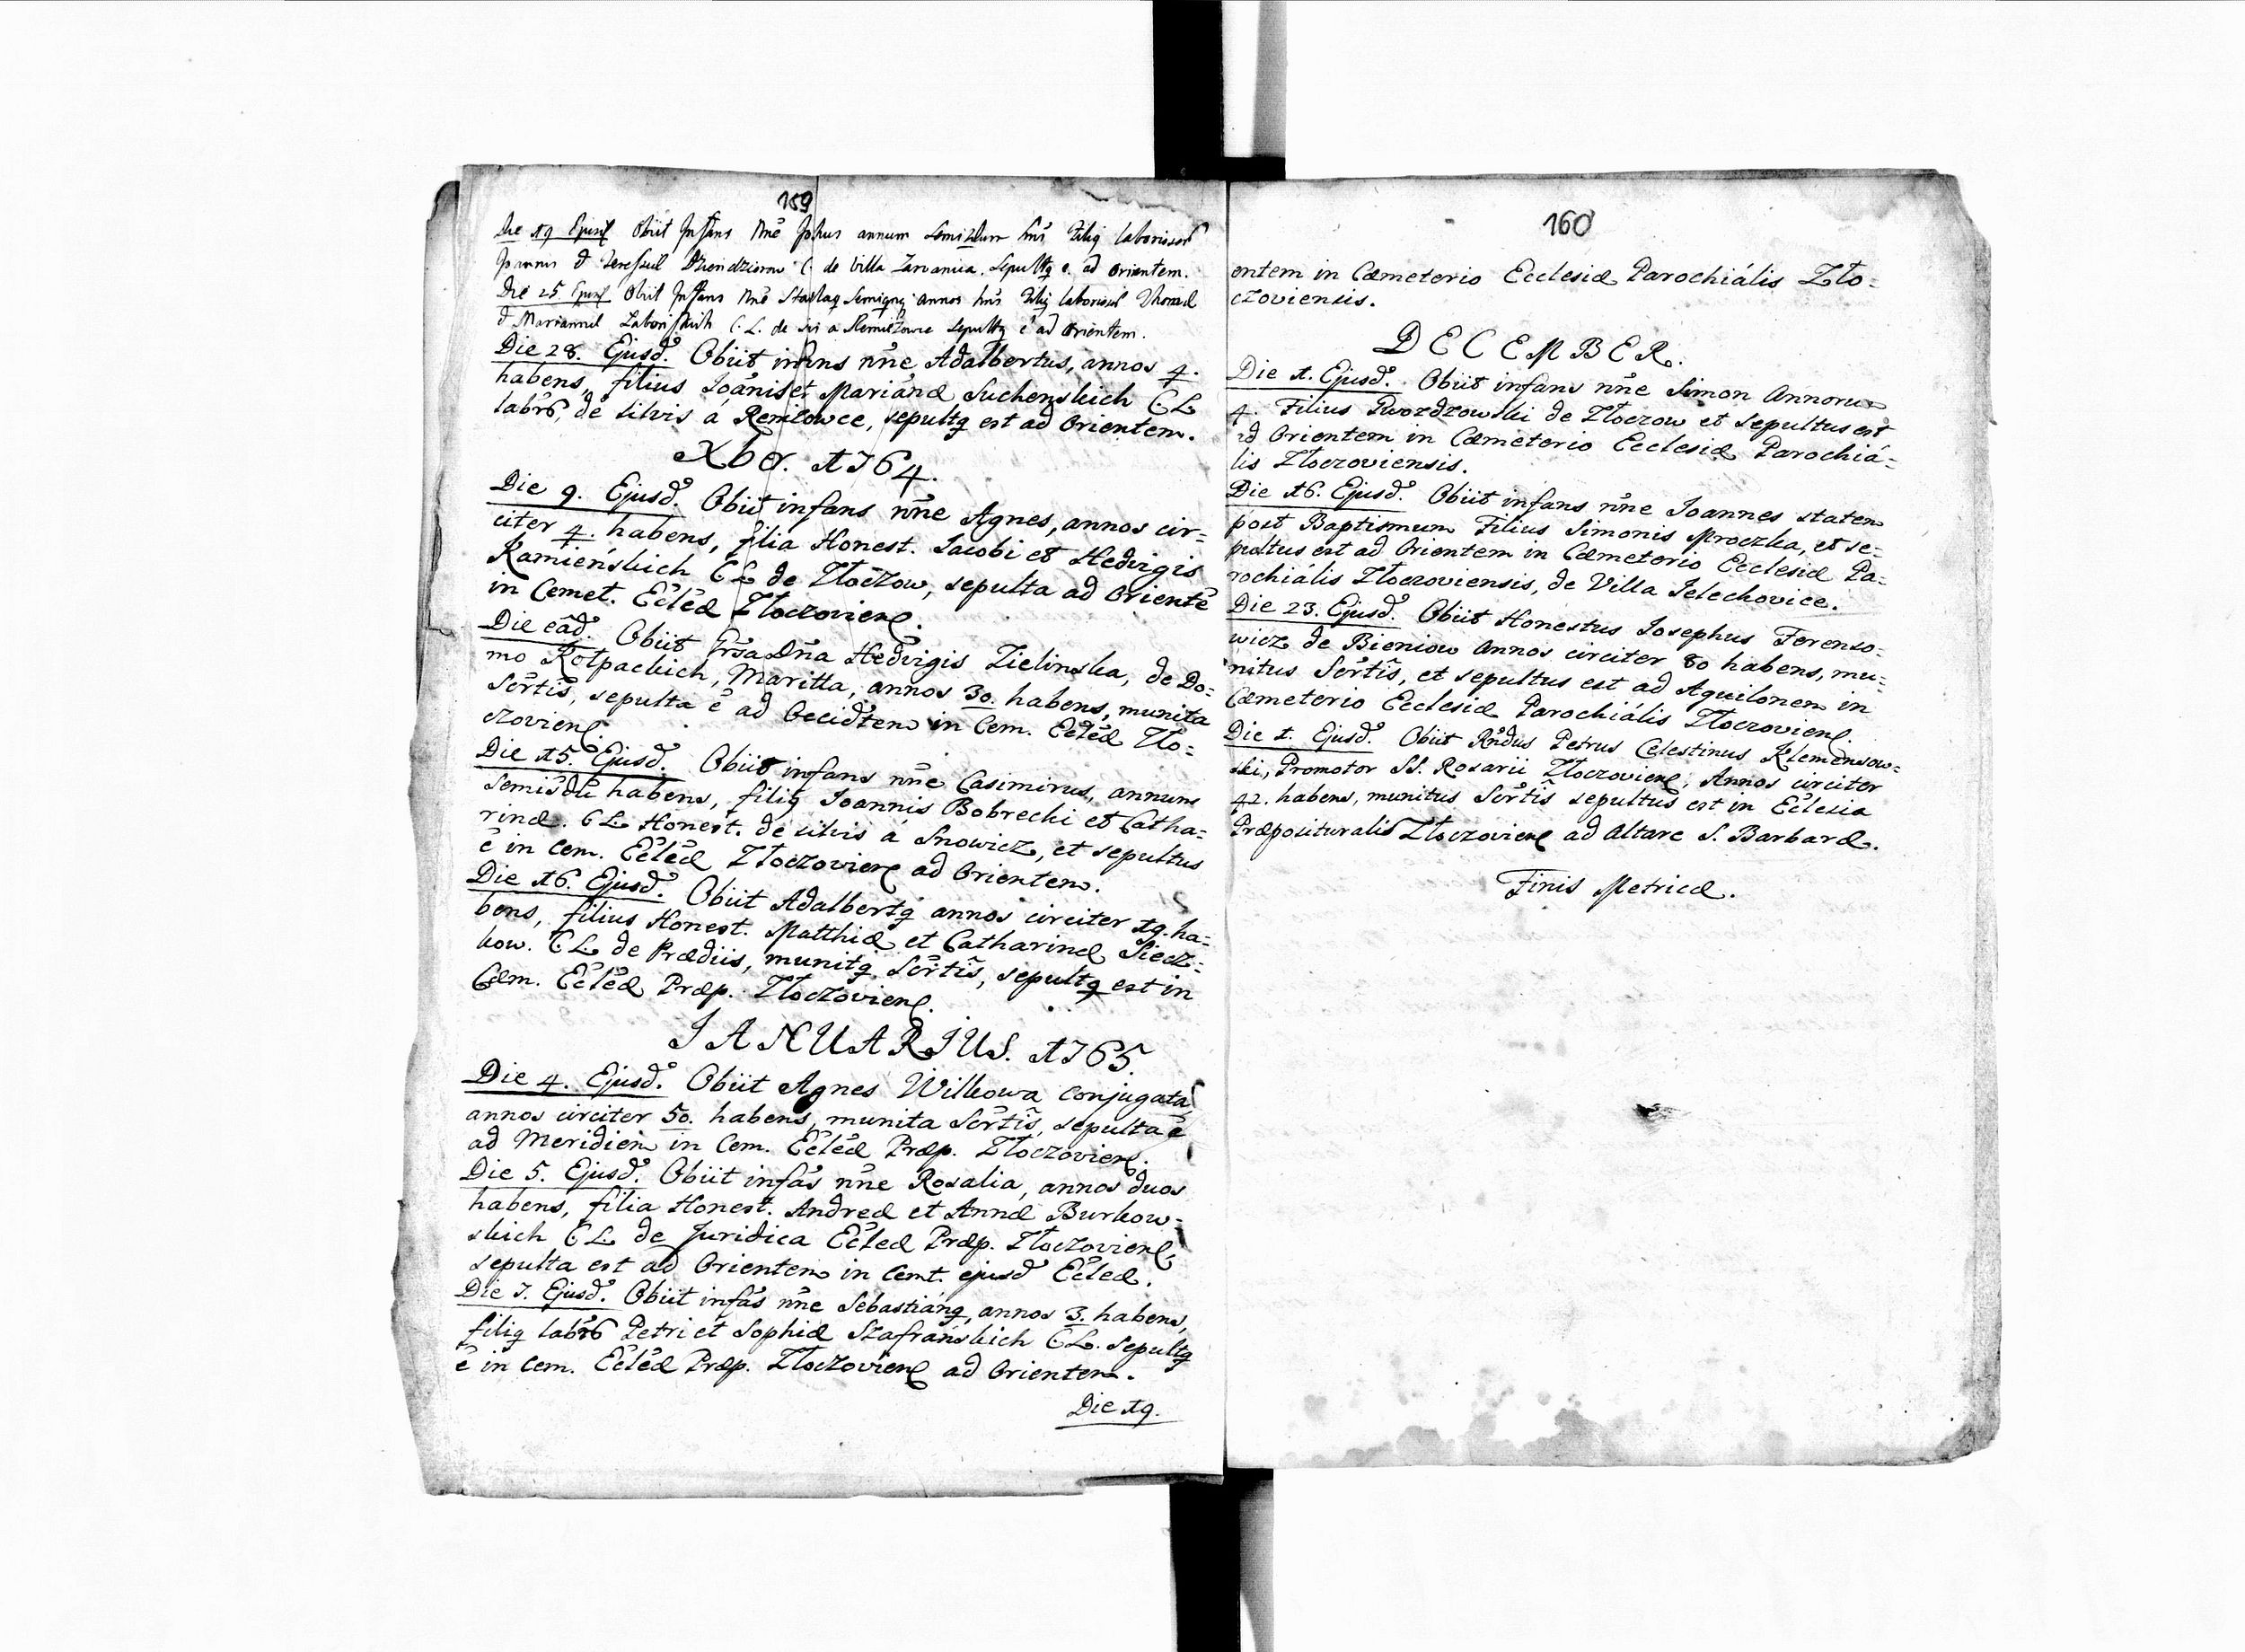 159
Die 19 Ejusd Obiit Infans nne annum Semi hns laborios
de Villa Zarvanica. Sepultq e. ad orientem.
Die 25 Ejusd Obiit Infans nne annos hns laborios
C. L. de a Remiżowce sepultq e ad orientem.
Die 28. Ejusd. Obiit infans nne Adalbertus, annos 4.
habens, filius Joanis et Marianæ Suchenskich CL
labrs, de silvis á Remiżowce, sepultq est ad Orientem.
Xbr. 1764.
Die 9. Ejusd. Obiit infans nne Agnes, annos cir=
citer 4. habens, filia Honest. Jacobi et Hedvigis
Kamieńskich CL de Złoczow, sepulta ad Orientē
in Cemet. Ecleæ Złoczovien.
Die eād. Obiit Hedvigis Zielinska, de Do=
mo Rołpackich, Maritta, annos 30. habens, munita
Sertis, sepulta ē ad Occidtem in Cem. Ecleæ Zło=
czovien.
Die 15. Ejusd. Obiit infans nne Casimirus, annum
semisdū habens, filiq Joannis Bobrecki et Catha=
rinæ. CL Honest. de silvis á Snowicz, et sepultus
ē in Cem. Ecleæ Złoczovien ad Orientem.
Die 16. Ejusd. Obiit Adalbertq annos circiter 19. ha=
bens, filius Honest. Matthiæ et Catharinæ Siecz=
kow. CL de Prædiis, munitq Sertis, sepultq est in
Cæm. Ecleæ Præp. Złoczovien.
JANUARIUS. 1765.
Die 4. Ejusd. Obiit Agnes Wilkowa conjugata
annos circiter 50. habens, munita Sertis, sepulta ē
ad Meridiem in Cem. Ecleæ Præp. Złoczovien.
Die 5. Ejusd. Obiit infās nne Rosalia, annos duos
habens, filia Honest. Andreæ et Annæ Burkow=
skich CL de Juridica Ecleæ Præp. Złoczovien,
sepulta est ad Orientem in Cemt. ejusd Ecleæ.
Die 7. Ejusd. Obiit infās nne Sebastiánq, annos 3. habens,
filiq labrs Petri et Sophiæ Szafrańskich CL. sepultq
ē in Cem. Ecleæ Præp. Złoczovien ad Orientem.
Die 19.
160
entem in Cæmeterio Ecclesiæ Parochiális Zło=
czoviensis.
DECEMBER.
Die 1. Ejusd. Obiit infans nne Simon Annorum
4. Filius Gwozdzowski de Złoczow et sepultus est
ad Orientem in Cæmeterio Ecclesiæ Parochiá=
lis Złoczoviensis.
Die 16. Ejusd. Obiit infans nne Joannes statem
post Baptismum Filius Simonis Mroczka, et se=
pultus est ad Orientem in Cæmeterio Ecclesiæ Pa=
rochiális Złoczoviensis, de Villa Jelechovice.
Die 23. Ejusd. Obiit Honestus Josephus Ferenso=
wicz de Bieniow annos circiter 80 habens, mu=
nitus Sertis, et sepultus est ad Aquilonem in
Cæmeterio Ecclesiæ Parochiális Złoczovien.
Die 1. Ejusd. Obiit Rndus Petrus Celestinus Klemensow=
ski, Promotor SS. Rosarii Złoczovien, Annos circiter
42. habens, munitus Sertis sepultus est in Eclesia
Præpositurali Złoczovien ad Altare S. Barbaræ.
Finis Metricæ.